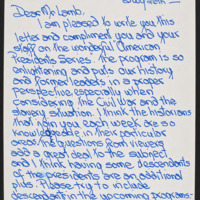 Dear Mr. Lamb,
I am pleased to write you this
letter and compliment you and your
staff on the wonderful "American
Presidents Series. The program is so
enlightening and puts our history
and former leaders in a proper
perspective especially when
considering the Civil War and the
slavery situation. I think the historians
that join you each week are so
knowledgeable in their particular
areas. The questions from viewers
add a great deal to the subject
and I think having some descendants
of the presidents are an additional
plus. Please try to include
descendants in the upcoming programs.